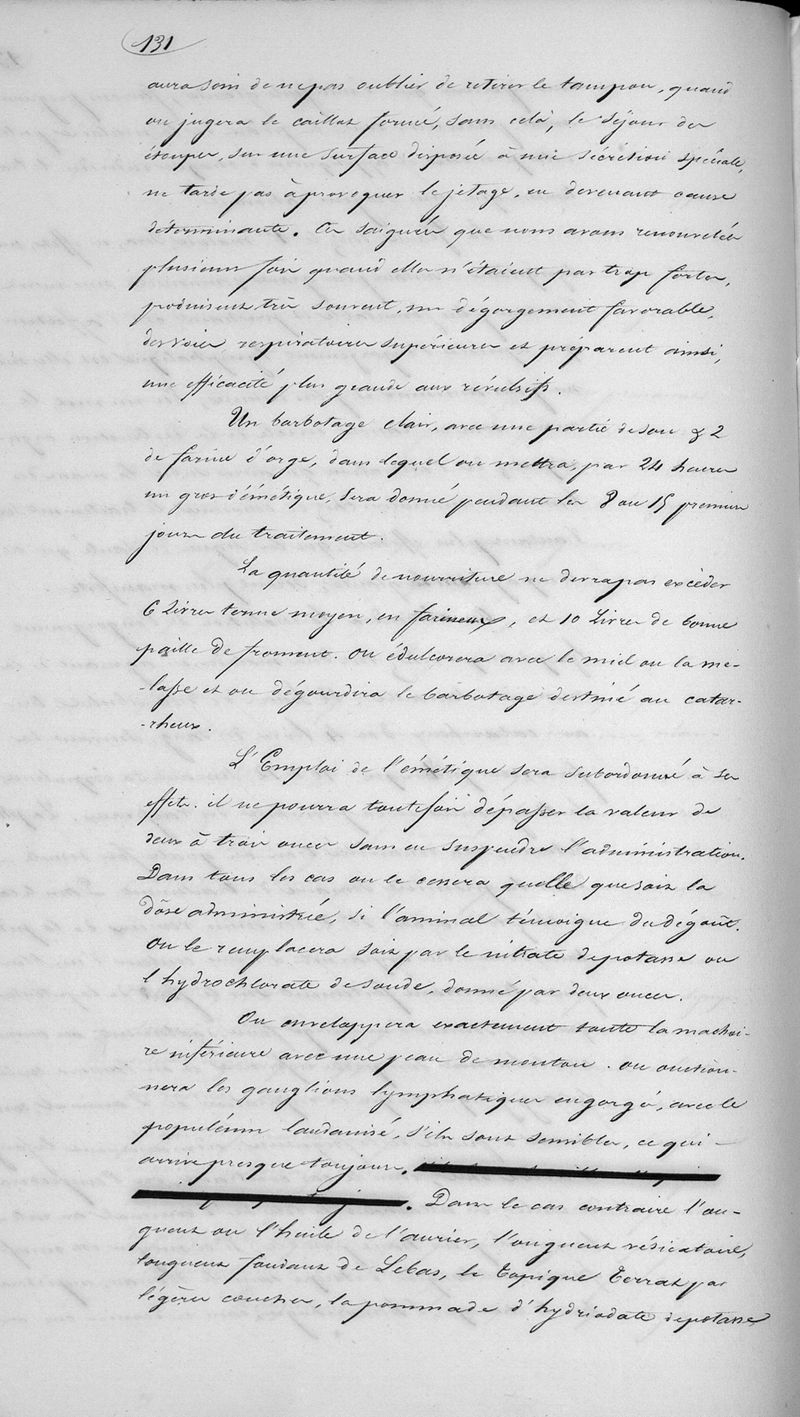 131
aura soin de ne pas oublier de retirer le tampon, quand
on jugera le caillot formé, sans cela, le séjour des
étoupes, sur une surface disposée à une sécrétion spéciale,
ne tarde pas à provoquer le jetage, en devenant cause
déterminante. Ces saignées que nous avons renouvelées
plusieurs fois quand elles n'étaient pas trop fortes,
produisent très souvent, un dégorgement favorable,
des voies respiratoires supérieures et préparent ainsi,
une efficacité plus grande aux révulsifs.
Un barbotage clair, avec une partie de son & 2
de farine d'orge, dans lequel on mettra, par 24 heures
un gros d'émétique, sera donné pendant les 8 ou 15 premiers
jours du traitement.
La quantité de nourriture ne devra pas excéder
6 Livres terme moyen, en farineux, et 10 Livres de bonne
paille de froment. On édulcorera avec le miel ou la mé-
-lasse et on dégourdira le barbotage destiné au catar-
-rheux.
L'Emploi de l'émétique sera subordonné à ses
effets. il ne pourra toutefois dépasser la valeur de
deux à trois onces sans en suspendre l'administration.
Dans tous les cas on le cessera quelle que soit la
dôse administrée, si l'aminal témoigne du dégoût.
On le remplacera soit par le nitrate de potasse ou
l'hydrochlorate de soude, donné par deux onces.
On enveloppera exactement toute la machoi-
re inférieure avec une peau de mouton. on onction-
nera les ganglions lymphatiques engorgés, avec le
populéum laudanisé, s'ils sont sensibles, ce qui
arrive presque toujours.
. Dans le cas contraire l'on-
guent ou l'huile de laurier, l'onguent vésicatoire,
l'onguent fondant de Lebas, le topique Terrat par
légères couches, la pommade d'hydriodate de potasse